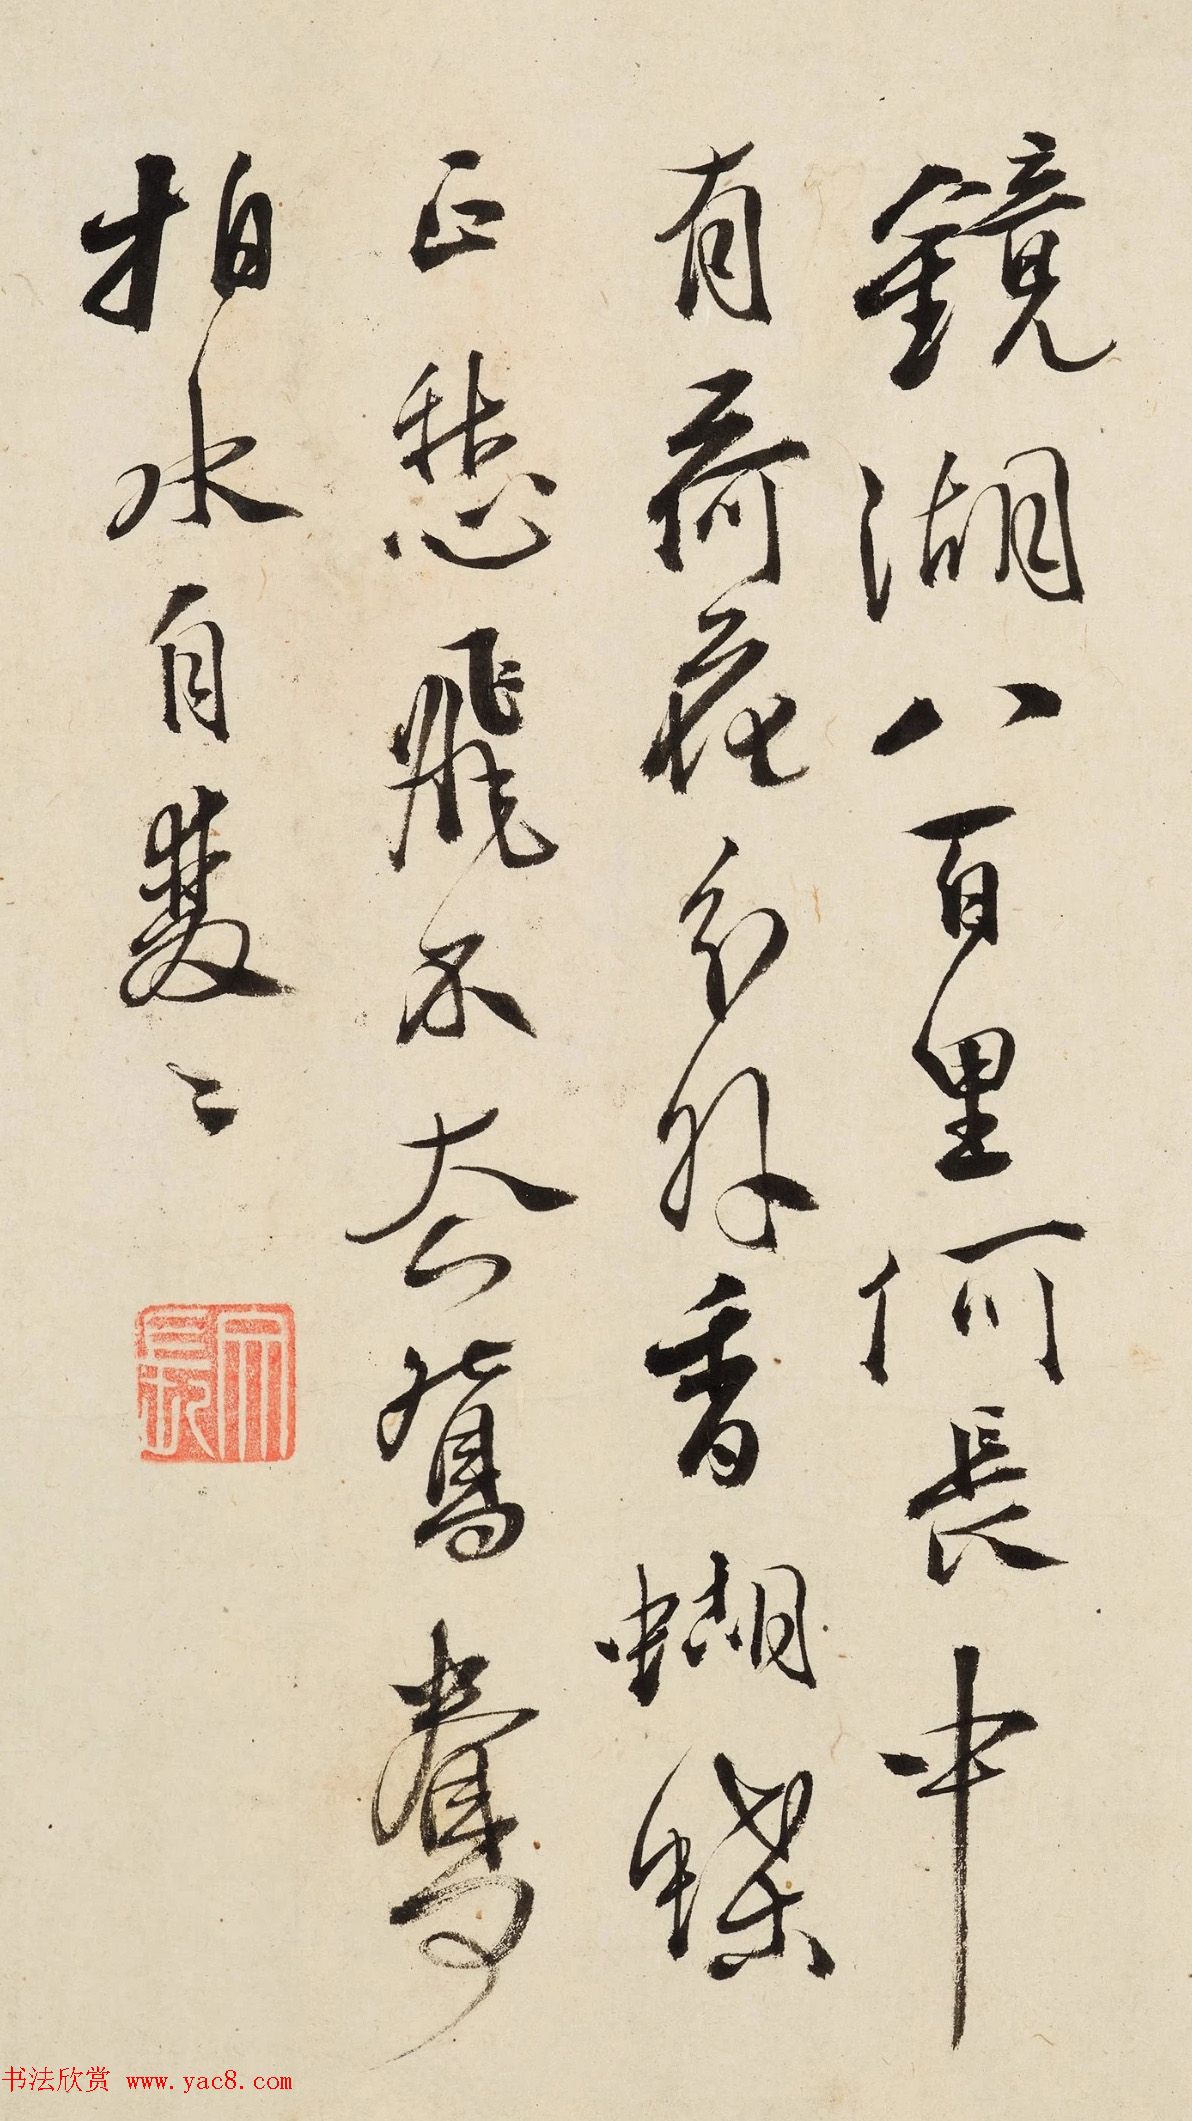 鏡湖八百里何長中
有荷花分外香蝴蝶
正愁飛不去鴛鴦
拍水自雙〻
书法欣赏 www.yac8.com